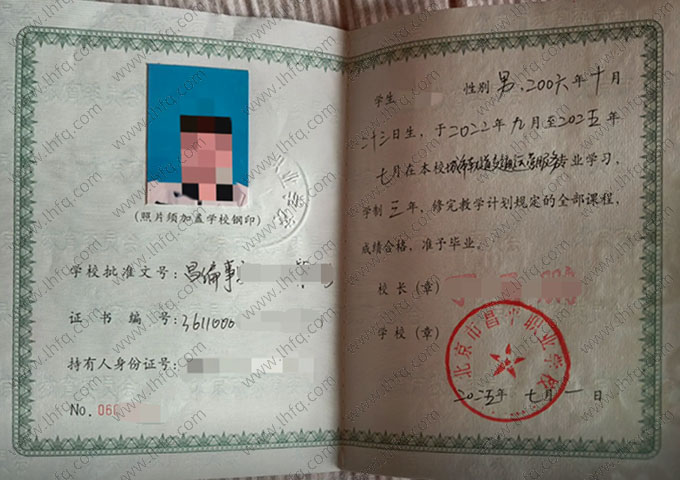 (照片须加盖学校钢印)
学校批准文号：昌编事
证书编号：3611000
持有人身份证号：
No. 060
学生 性别 男，2006年十月
二十三日生，于2022年九月至2025年
七月在本校城市轨道交通运营服务专业学习，
学制三年，修完教学计划规定的全部课程，
成绩合格，准予毕业。
校长（章）
学校（章）
北京市昌平职业学校
2025年七月一日
www.lhfq.com